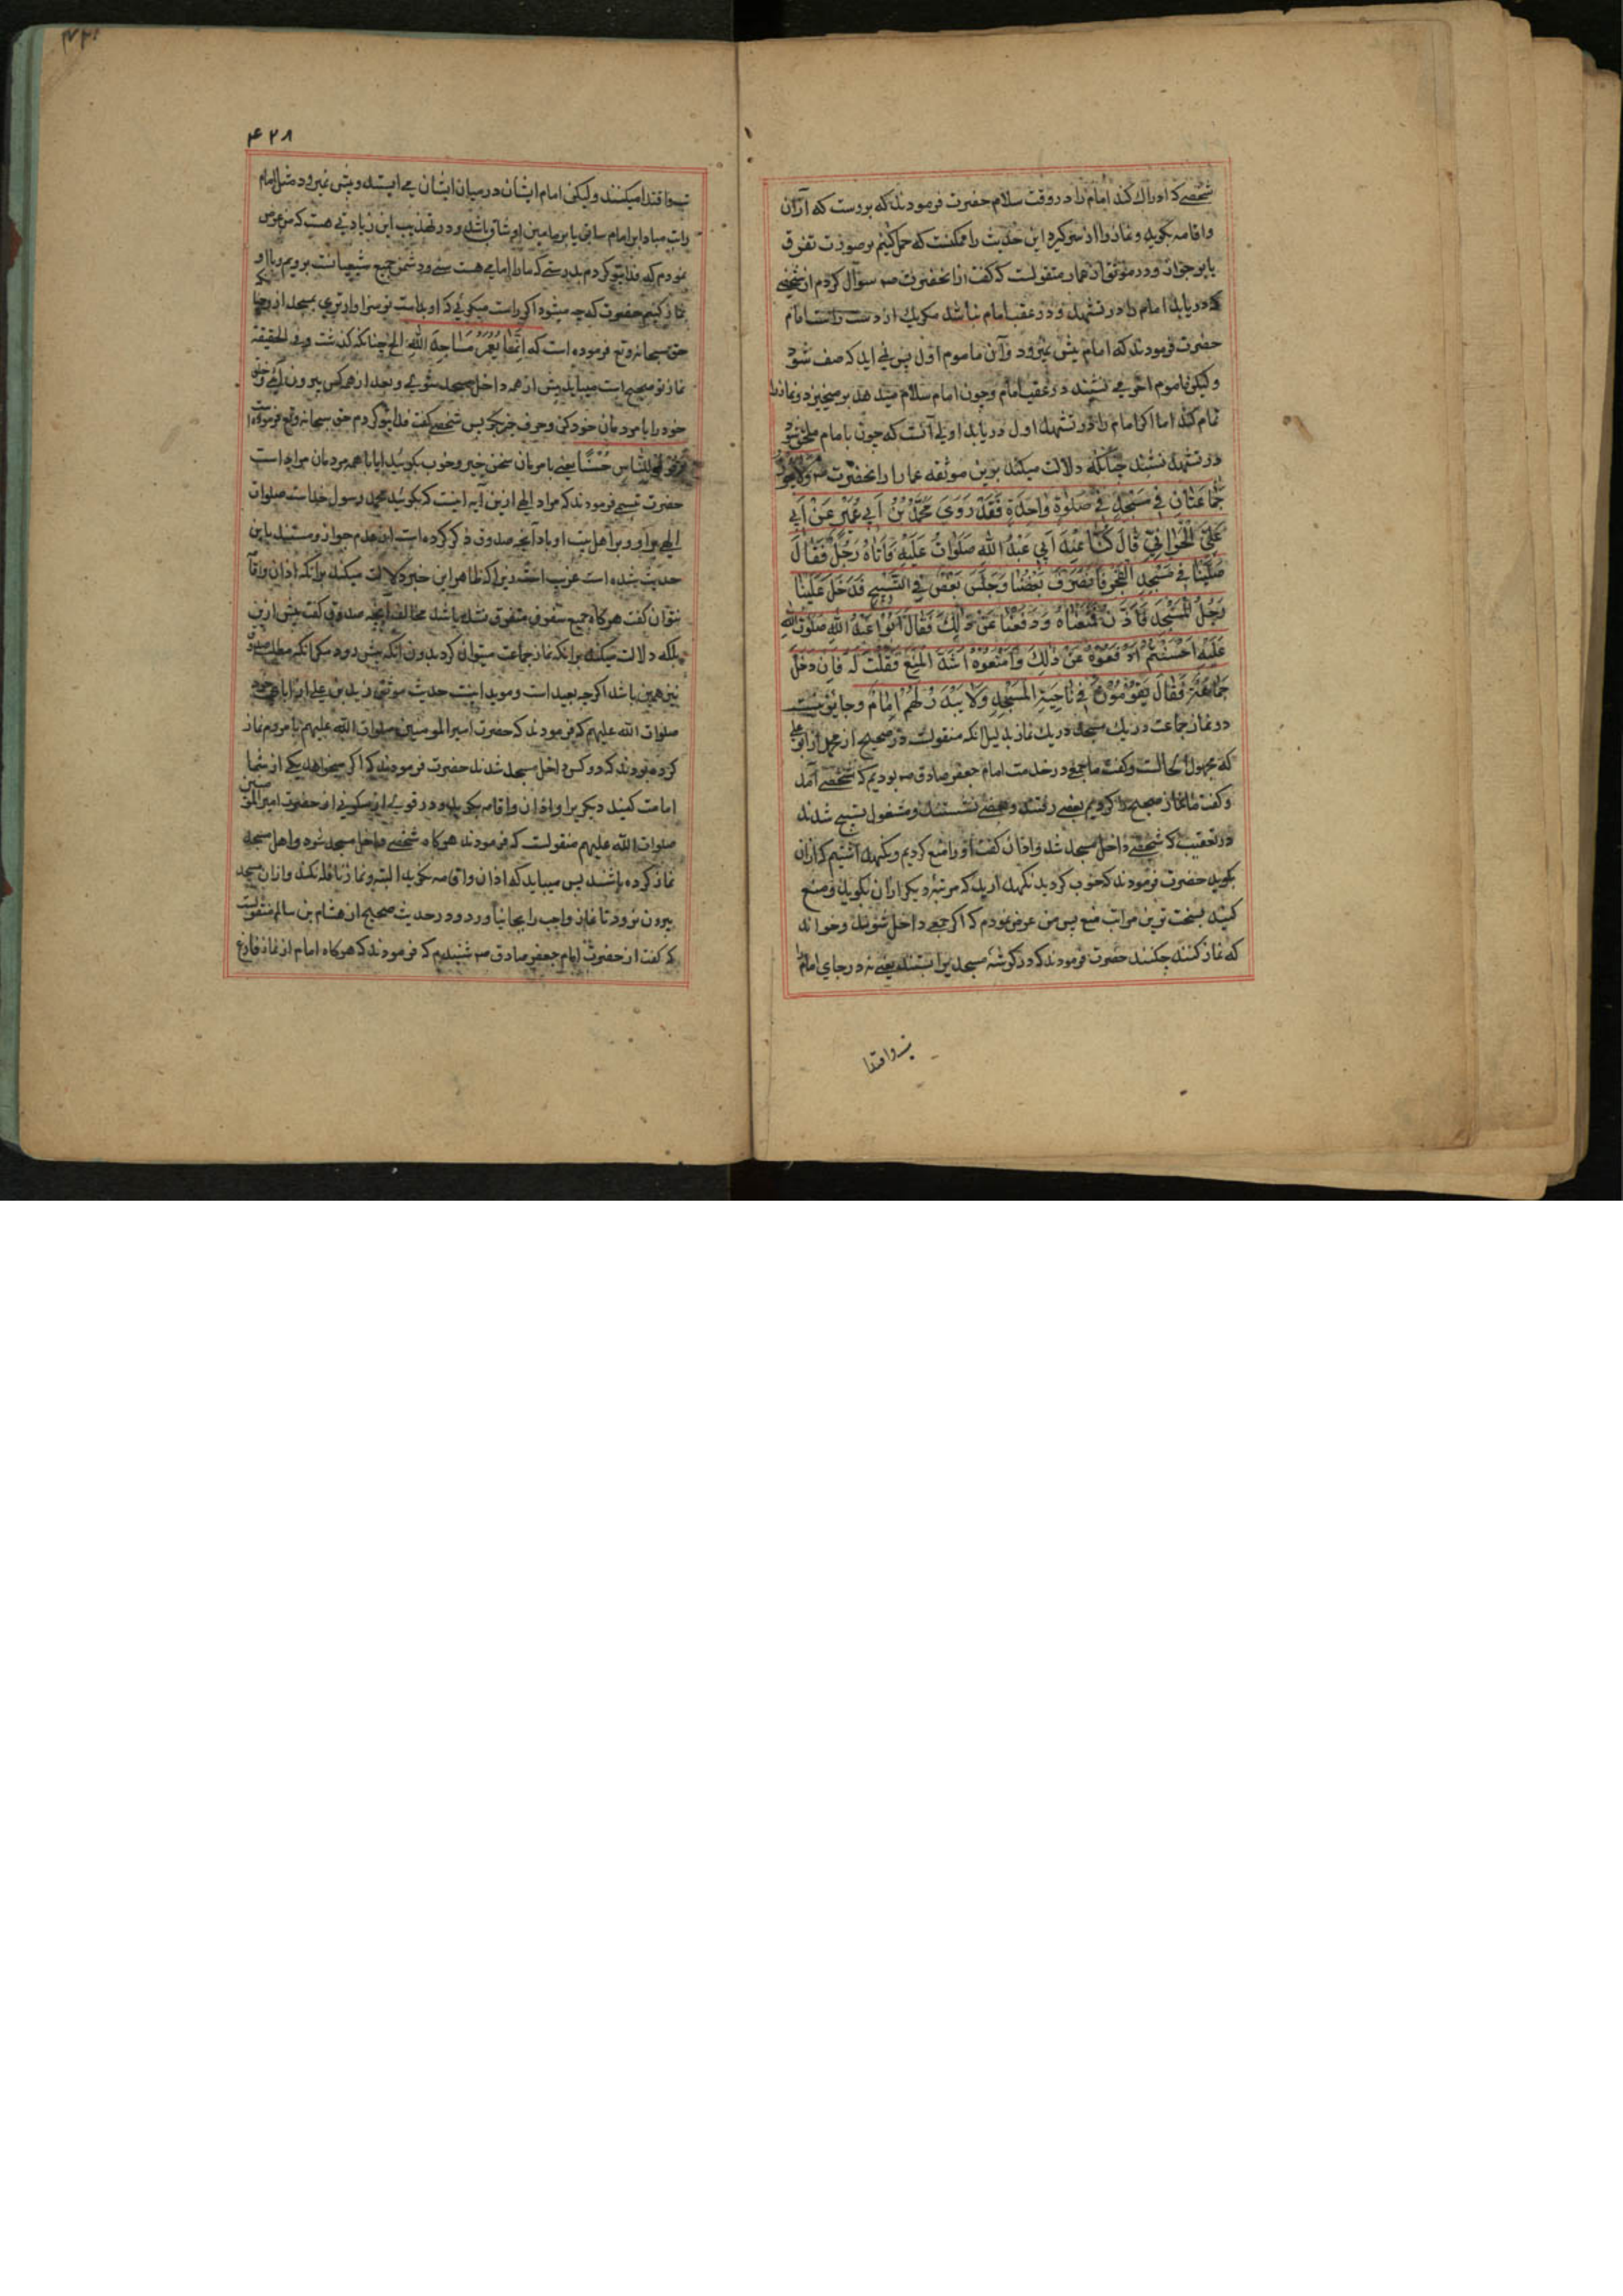 شخصے که ادراک کند امام را در وقت سلام حضرت فرمودند که بروست که اذان
واقامه بکوید ونماز را از سر کیرد این حدیث را ممکنست که حمل کنیم بر صورت تفرق
یا بر جواز ودر موثق از عمار منقولست که کفت از انحضرت صه سوآل کردم از شخصے
که دریابد امام را در تشهد و در عقب امام نباشد مکر یک از دست راست امام
حضرت فرمودند که امام پیش نمیرود وآن ماموم اول پس نمی اید که صف شود
ولیکن ماموم اخر مے نشیند در عقب امام وچون امام سلام میدهد بر میخیزد ونماز را
تمام کند اما اکر امام را در تشهد اول دریابد اولی آنست که چون با امام ملحق شود
در تشهد ننشند چنانکه دلالت میکند برین موثقه عمار از انحضرت صه ولا یجوز
جماعتان في مسجد في صلوة واحدة فقد روی محمد بن ابي عمیر عن ابي
علي الحراني قال کنا عند ابي عبد الله صلوات علیه فاتاه رجل فقال
صلینا في مسجد الفجر فانصرف بعضنا وجلس بعض في التسبیح فدخل علینا
رجل المسجد فاذن فمنعناه ودفعنا عن ذلك فقال ابو عبد الله صلوت الله
علیه احسنتم ادفعوه عن ذلك وامنعوه اشد المنع فقلت له فان دخل
جماعة فقال یقومون في ناحیة المسجد ولا یبدر لهم امام وجایز نیست
دو نماز جماعت در یک مسجد در یک نماز بدلیل انکه منقولست در صحیح از محمد از ابو علی
که مجهول الحالست وکفت ما جمعی در خدمت امام جعفر صادق صه بودیم که شخصے آمد
وکفت ما نماز صبح را کردیم بعضے رفتند وبعضے نشستند ومشغول تسبیح شدند
در تعقیب که شخصے داخل مسجد شد واذان کفت او را منع کردیم ونکهداشتیم که اذان
بکوید حضرت فرمودند که خوب کردید نکهدارید که مرتبه دیکر اذان نکوید ومنع
کنید بسخت ترین مراتب منع پس من عرض نمودم که اکر جمعی داخل شوند وخواهند
که نماز کنند چکنند حضرت فرمودند که در کوشه مسجد برابستند یعنے نه در جای امام
واقتدا
۴۲۸
واقتدا میکنند ولیکن امام ایشان در میان ایشان می ایستد وپیش نمیرود مثل امام
راتب مبادا بر امام سابق یا بر مامومین او شاق باشد ودر تهذیب این زیادتی هست که من عرض
نمودم که فدایت کردم بدرستے که ما را امامی هست سنے ودشمن جمیع شیعیانست برویم وبا او
نماز کنیم حضرت که چه میشود اکر راست میکوئی که او بداست تو سزاوارتری بمسجد از
حق سبحانه وتع فرموده است که انما یعمر مساجد الله الخ چنانکه کذشت وفی الحقیقة
نماز تو صحیح است میباید پیش از همه داخل مسجد شوی وبعد از همه کس بیرون آئی وخلق
خود را با مردمان خود کنی وحرف خیر کو پس شخصے کفت فدایت کردم حق سبحانه وتع فرموده است
قولوا للناس حسنا یعنے با مردمان سخن خیر وخوب بکوئید ایا با همه مردمان مراد است
حضرت تبسم فرمودند که مراد الهی از این آیه اینست که بکوئید محمد رسول خداست صلوات
الهی بر او وبر اهل بیت او باد آنچه صدوق ذکر کرده است از عدم جواز ومستند باین
حدیث شده است غریب است زیرا که ظاهر این خبر دلالت میکند برانکه اذان واقا
نتوان کفت هر کاه جمیع صفوف متفرق نشده باشد مخالف آنچه صدوق کفت پیش ازین
بلکه دلالت میکند برانکه نماز جماعت میتوان کرد بدون آنکه پیش رود مکر انکه مطلب صدوق
نیز همین باشد اکرچه بعید است وموید اینست حدیث موثق زید بن علی از اباء خود
صلوات الله علیهم که فرمودند که حضرت امیر المومنین صلوات الله علیهم با مردم نماز
کرده بودند که دو کس داخل مسجد شدند حضرت فرمودند که اکر میخواهد یکے از شما
امامت کنید دیکریرا واذان واقامه نکوید ودر قوی از سکونی از حضرت امیر المومنین
صلوات الله علیهم منقولست که فرمودند هر کاه شخصے داخل مسجد شود واهل مسجد
نماز کرده باشند پس میباید که اذان واقامه نکوید البته ونماز نافله نکند وازان مسجد
بیرون نرود تا نماز واجب را بجا نیاورد ودر حدیث صحیح از هشام بن سالم منقولست
که کفت از حضرت امام جعفر صادق صه شنیدم که فرمودند که هر کاه امام از نماز فارغ